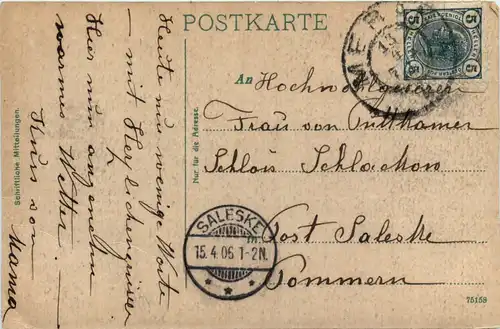 POSTKARTE
Schriftliche Mitteilungen.
Heute nur wenige Worte
– mit Herzlichen
Hier nun angenehm
warmes Wetter. –
Kuss von
Mama
Nur für die Adresse.
An Hochwolgeboren
Frau von Puttkamer
Schloss Schlackow
Post Saleske
Pommern
5 5
HELLER HELLER
5 5
SALESKE
15.4.06.1-2N.
* * *
75158